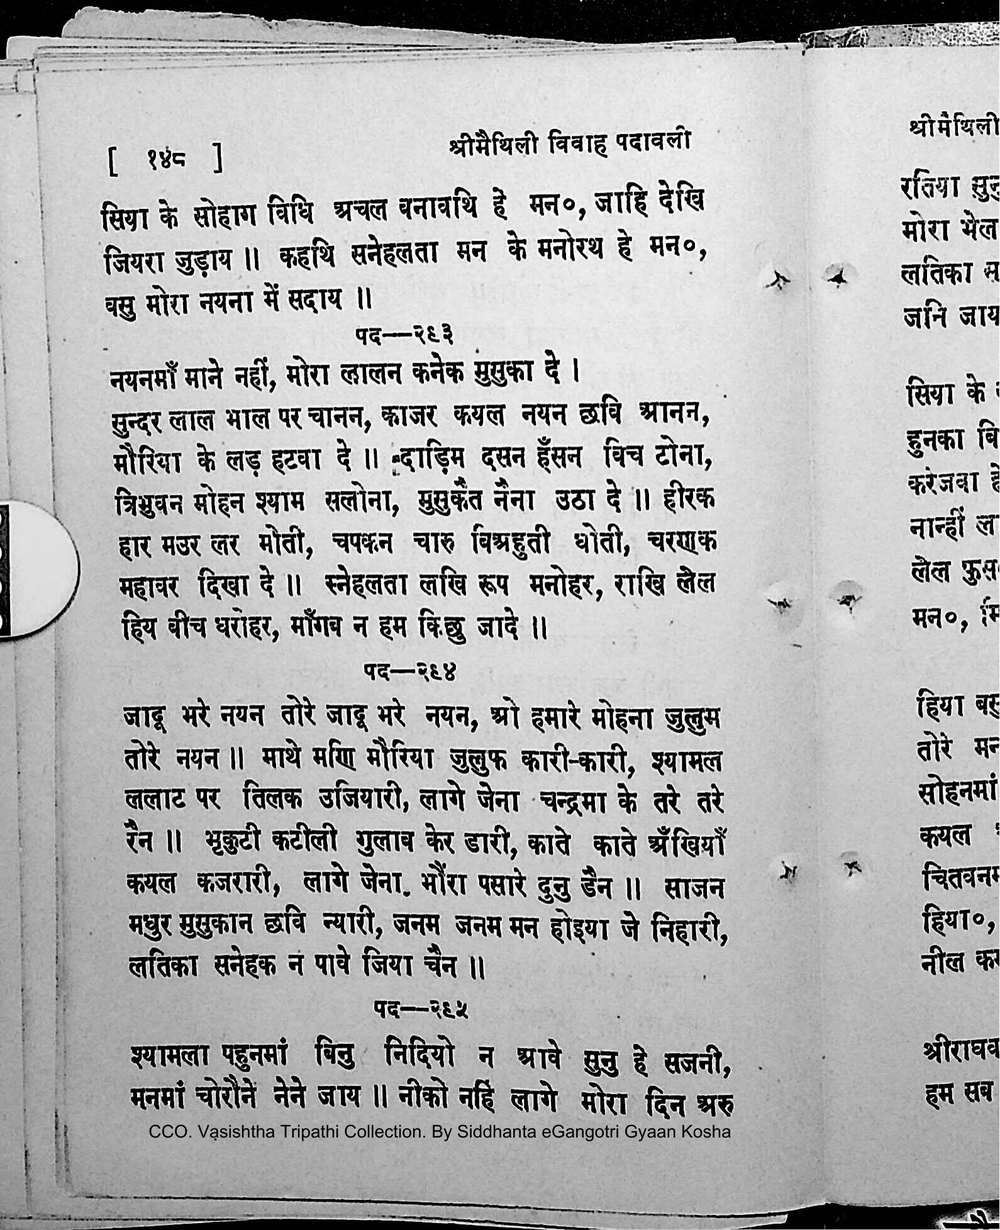 [ १४८ ] श्रीमैथिली विवाह पदावली
सिया के सोहाग विधि अचल बनावथि हे मन०, जाहि देखि
जियरा जुड़ाय ॥ कहथि सनेहलता मन के मनोरथ हे मन०,
बसु मोरा नयना में सदाय ॥
पद—२९३
नयनमाँ माने नहीं, मोरा लालन कनेक मुसुका दे ।
सुन्दर लाल भाल पर चानन, काजर कयल नयन छवि आनन,
मौरिया के लड़ हटवा दे ॥ दाड़िम दसन हँसन विच टोना,
त्रिभुवन मोहन श्याम सलोना, मुसुकैत नैना उठा दे ॥ हीरक
हार मउर लर मोती, चपकन चारु विअहुती धोती, चरणक
महावर दिखा दे ॥ स्नेहलता लखि रूप मनोहर, राखि लेल
हिय बीच धरोहर, माँगब न हम किछु जादे ॥
पद—२९४
जादू भरे नयन तोरे जादू भरे नयन, ओ हमारे मोहना जुलुम
तोरे नयन ॥ माथे मणि मौरिया जुलुफ कारी-कारी, श्यामल
ललाट पर तिलक उजियारी, लागे जेना चन्द्रमा के तरे तरे
रैन ॥ भृकुटी कटीली गुलाब केर डारी, काते काते अँखियाँ
कयल कजरारी, लागे जेना भौंरा पसारे दुनु डैन ॥ साजन
मधुर मुसुकान छवि न्यारी, जनम जनम मन होइया जे निहारी,
लतिका सनेहक न पावे जिया चैन ॥
पद—२९५
श्यामला पहुनमां बिनु निदियो न आवे सुनु हे सजनी,
मनमां चोरौने नेने जाय ॥ नीको नहिं लागे मोरा दिन अरु
CCO. Vasishtha Tripathi Collection. By Siddhanta eGangotri Gyaan Kosha
श्रीमैथिली
रतिया
मोरा भेल
लतिका
जनि जाय
सिया के
हुनका
करेजवा
नान्हीं
लेल
मन०,
हिया
तोरे
सोहनमां
कयल
हिया०,
नील
हम सब